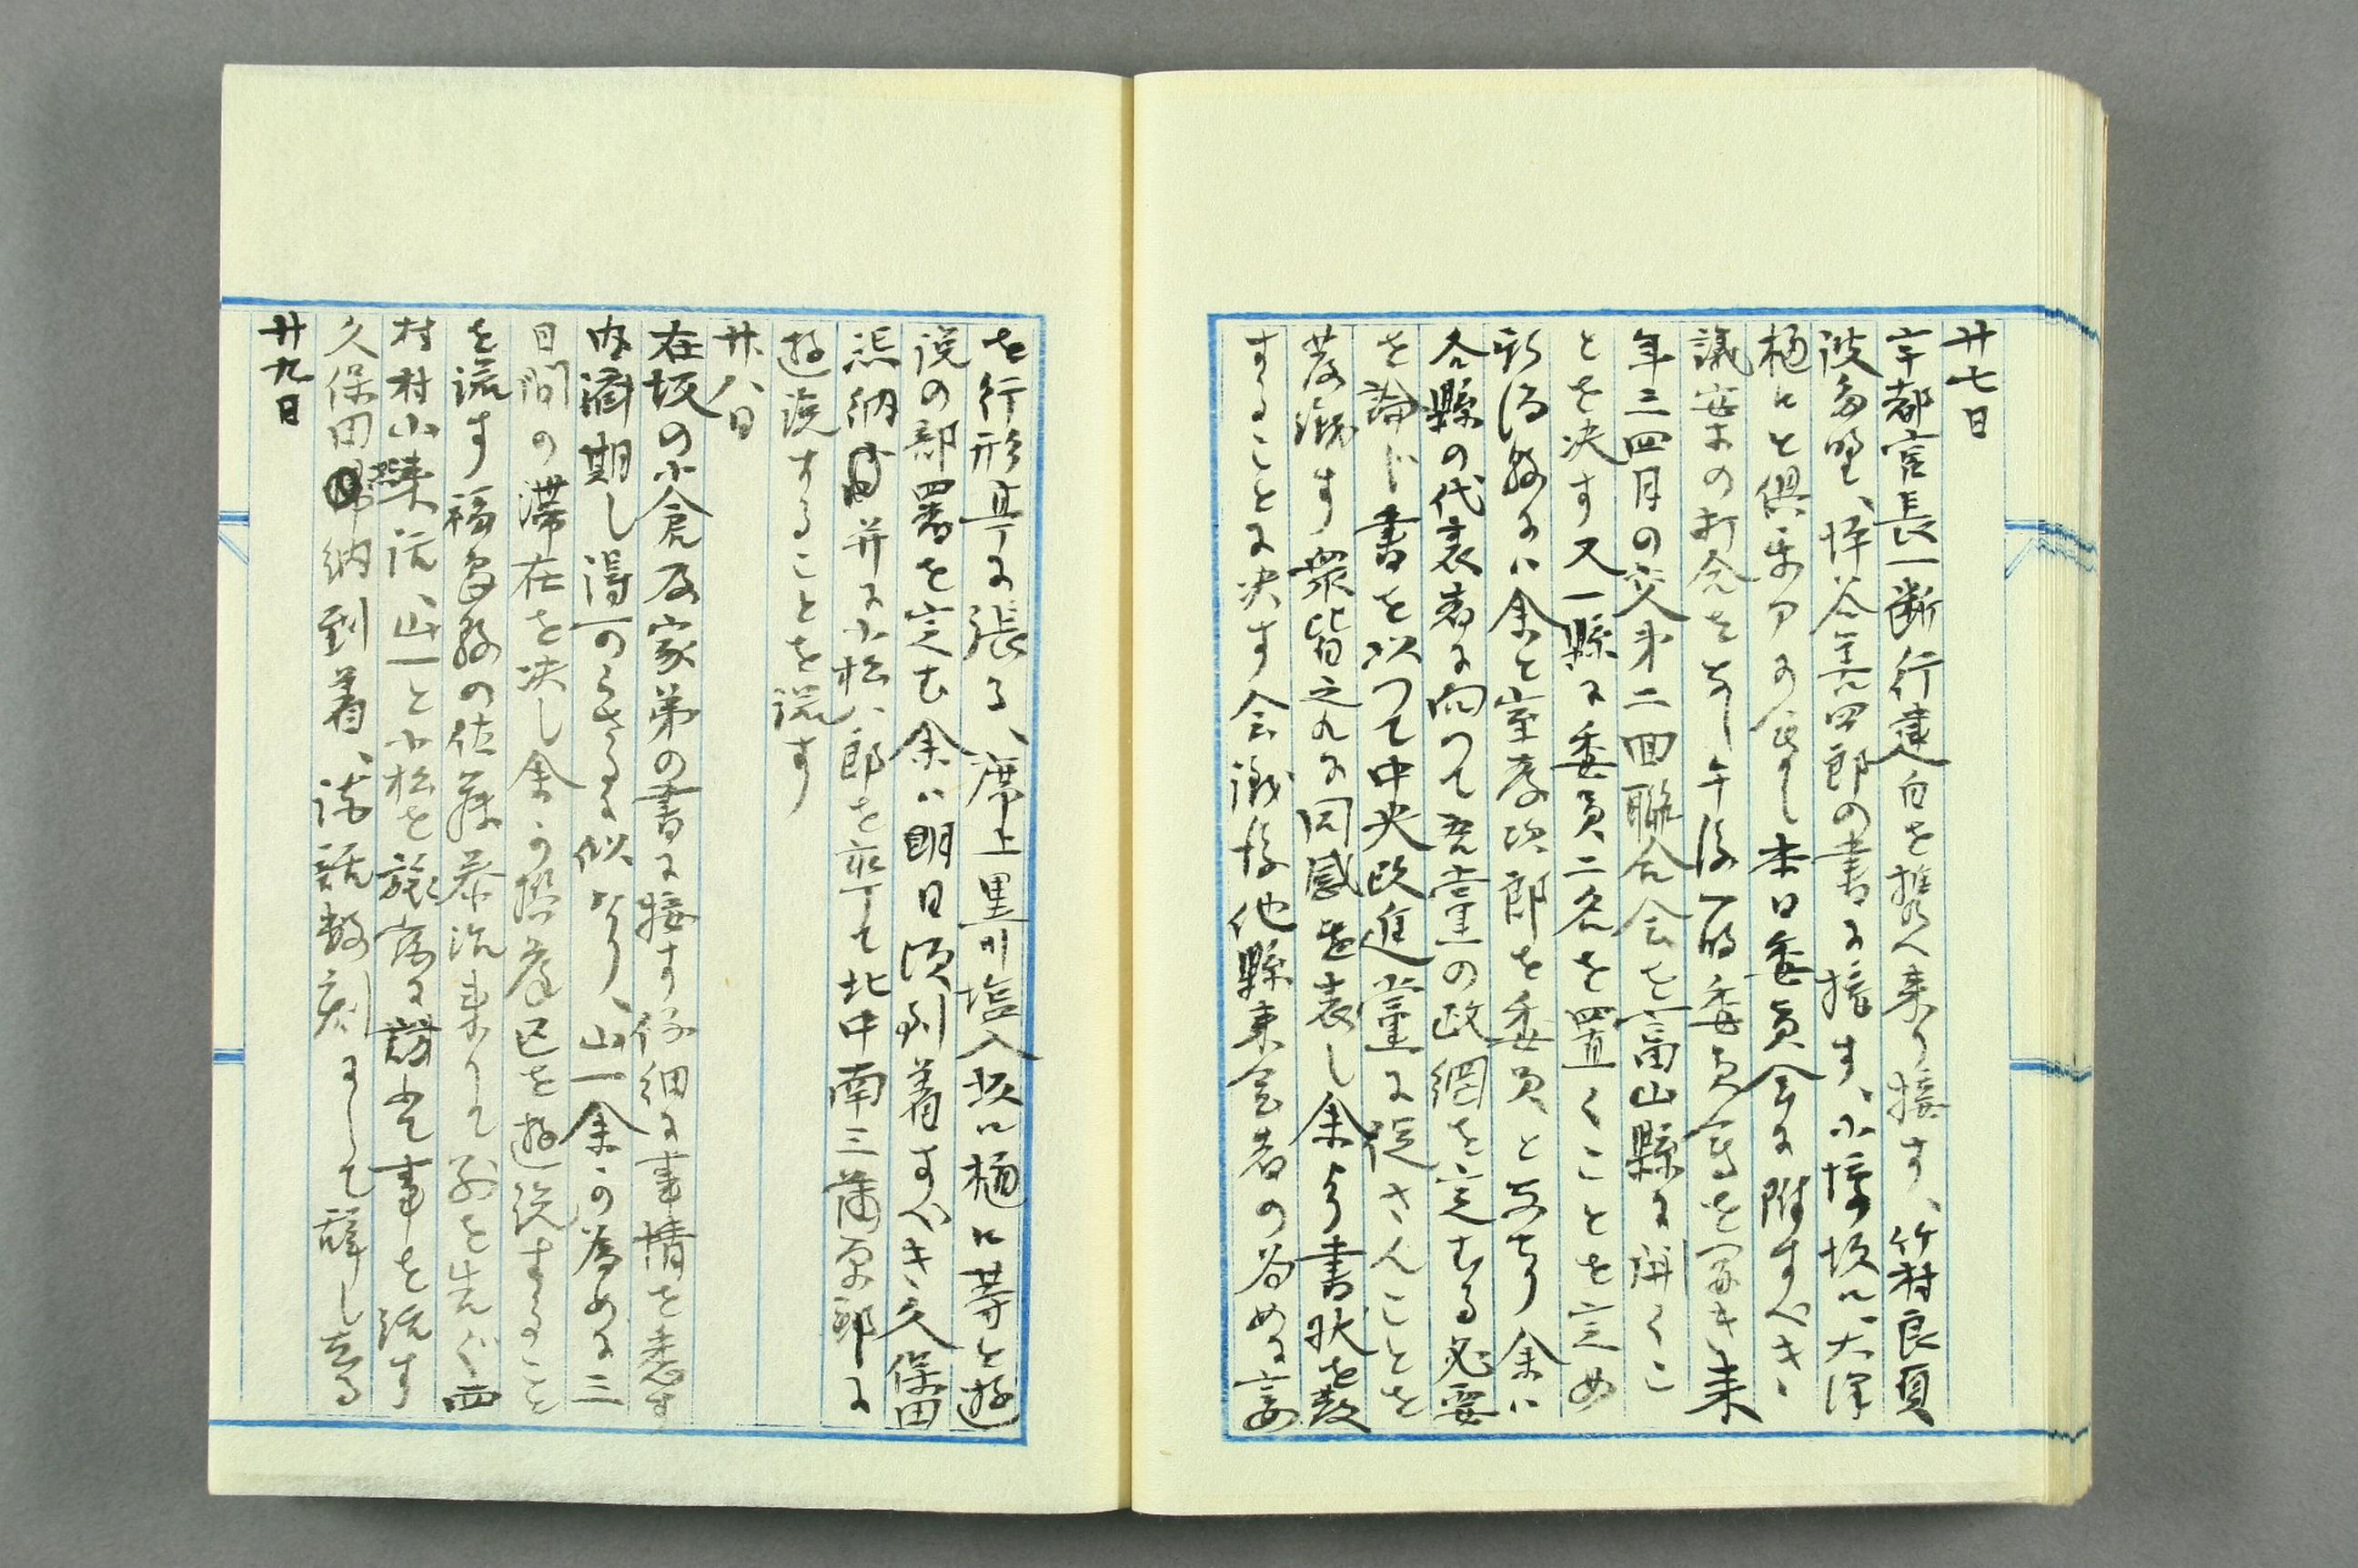 廿七日
宇都宮長一断行建白を携へ来り接す、竹村良貞
波多野、惇谷善四郎の書に接す、小塚坂に、大津
樋口と倶
本日委員会に附すべき
議案の打合をなし午後一時委員会を開き来
年三四月の交第二回聯合会を富山縣に開くこ
とを決す又一縣に委員二名を置くことを定め
新潟縣には余と室孝次郎を委員となせり余は
各縣の代表者に向つて吾党の政綱を定むる必要
を論じ書を以つて中央政進党に促さんことを
発議す衆皆之れに同感を表し余より書状を発
することに決す会議後他縣来会者の為めに宴
を行形亭に張る、席上黒川塩入坂口樋口等と遊
説の部署を定む余は明日頃到着すべき久保田
譲納并に小松八郎を率て北中南三蒲原郡に
遊説することを諾す
廿八日
在坂の小倉及家弟の書に接す仔細に事情を悉す
内
期し得可らさるに似たり、山一余の為めに三
日間の滞在を決し余の
を遊説すること
を諾す福島縣の佐藤
来りて
を先ぐ西
村村山来訪、山一と小松を旅寓に訪せ事を談す
久保田
納到着、談話数刻にして辞し去る
廿九日